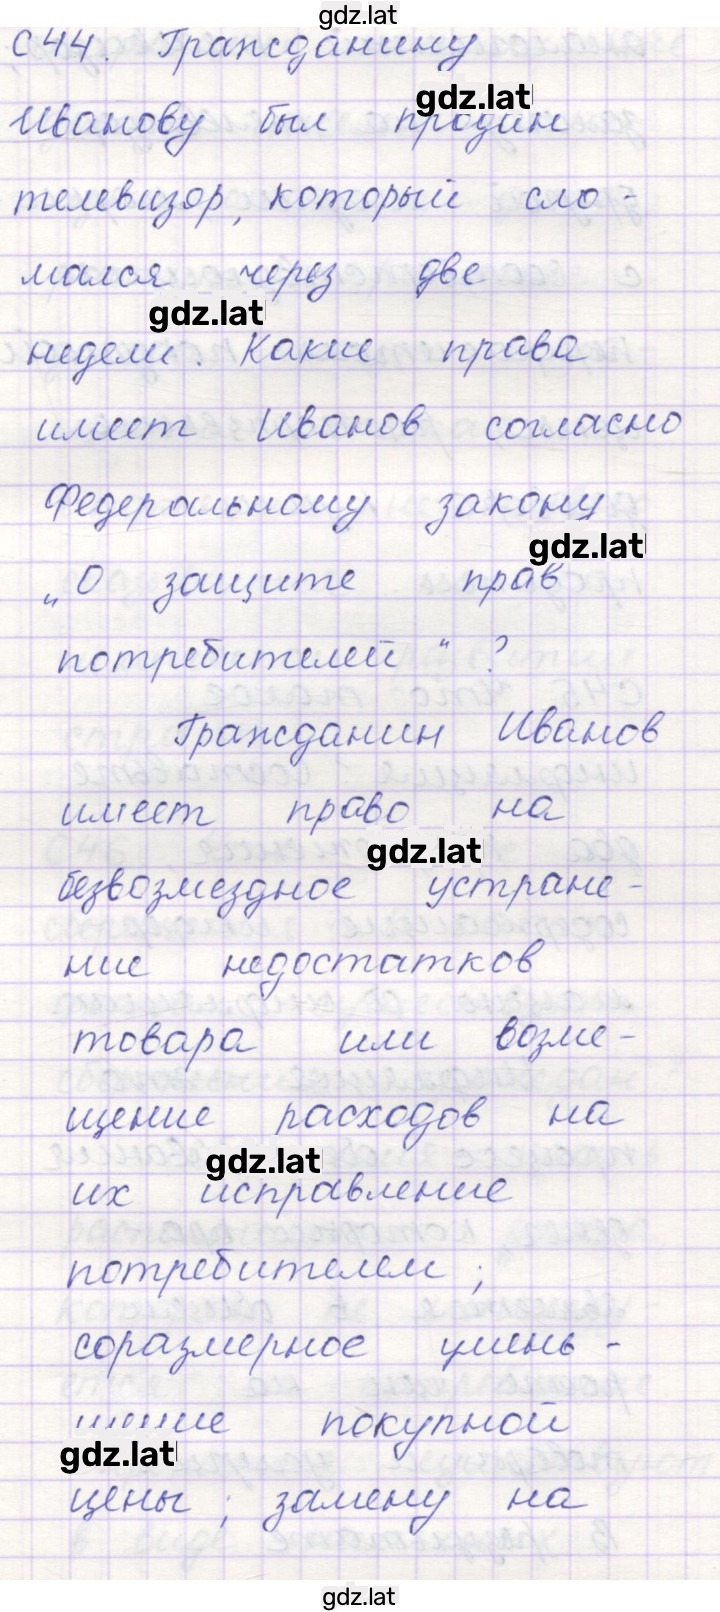 gdz.lat
С44. Гражданину
gdz.lat
Иванову был продан
телевизор, который сло-
мался через две
gdz.lat
недели. Какие права
имеет Иванов согласно
Федеральному закону
gdz.lat
„О защите прав
потребителей“?
Гражданин Иванов
имеет право на
gdz.lat
безвозмездное устране-
ние недостатков
товара или возме-
щение расходов на
gdz.lat
их исправление
потребителем;
соразмерное умень-
шение покупной
gdz.lat
цены; замену на
gdz.lat